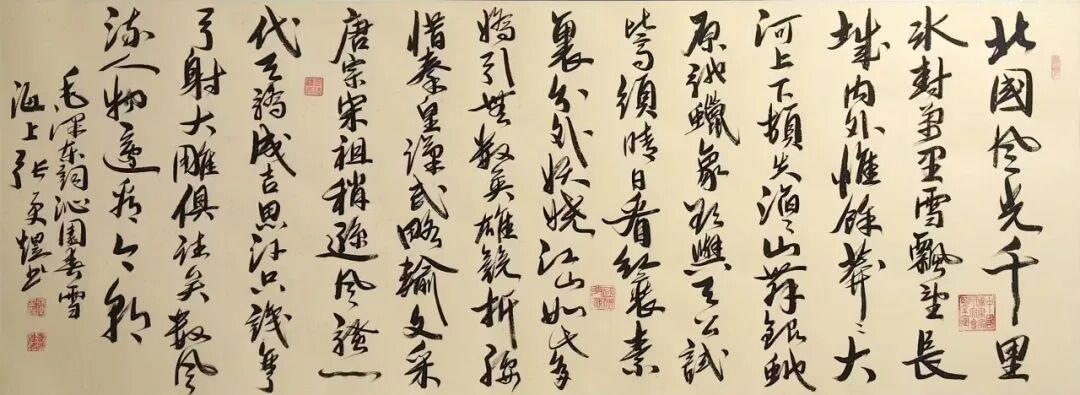 北國風光千里
冰封萬里雪飄望長
城内外惟餘莽〻大
河上下頓失滔〻山舞銀蛇
原馳蠟象欲與天公試
比高須晴日看紅裝素
裹分外妖嬈江山如此多
嬌引無數英雄競折腰
惜秦皇漢武略輸文采
唐宗宋祖稍遜風騷一
代天驕成吉思汗只識彎
弓射大雕俱往矣數風
流人物還看今朝
毛澤東詞沁園春雪
海上張煜書